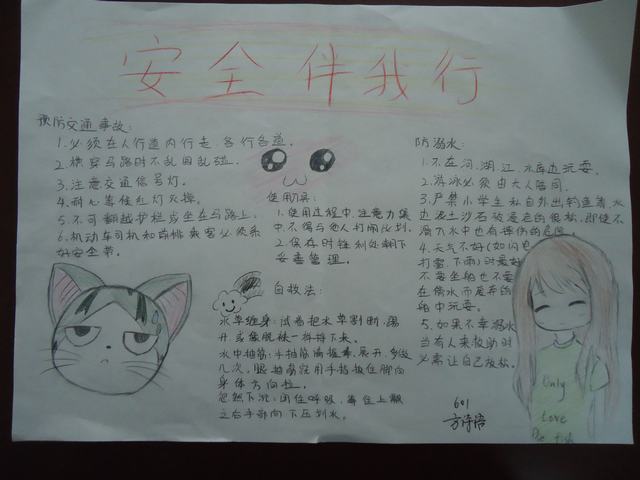 安全伴我行
预防交通事故:
1.必须在人行道内行走,各行各道。
2.横穿马路时不乱闯乱碰。
3.注意交通信号灯。
4.耐心等候红灯灭掉。
5.不可翻越护栏或坐在马路上。
6.机动车司机和前排乘客必须系
好安全带。
使用刀具:
1.使用过程中,注意力集
中,不得与他人打闹比划。
2.保存时锋利处朝下
妥善管理。
自救法:
水草缠身:试着把水草割断,踢
开或像脱袜一样捋下来。
水中抽筋:手抽筋 握拳,展开,多做
几次,腿抽筋就用手指扳住脚向
身体方向拉。
忽然下沉:闭住呼吸,
之后手部向下压划水。
防溺水:
1.不在河、湖、江、水库边玩耍。
2.游泳必须由大人陪同。
3.严禁小学生私自外出钓鱼等,水
边泥土沙石被浸泡的很松,即使不
滑入水中也有摔伤的危险
4.天气不好(如闪电
打雷 下雨)时最好
不要坐船也不要
在
船中玩耍。
5.如果不幸溺水
当有人来救助时
必需让自己放松。
Only
Love
The fish
601
方诗语